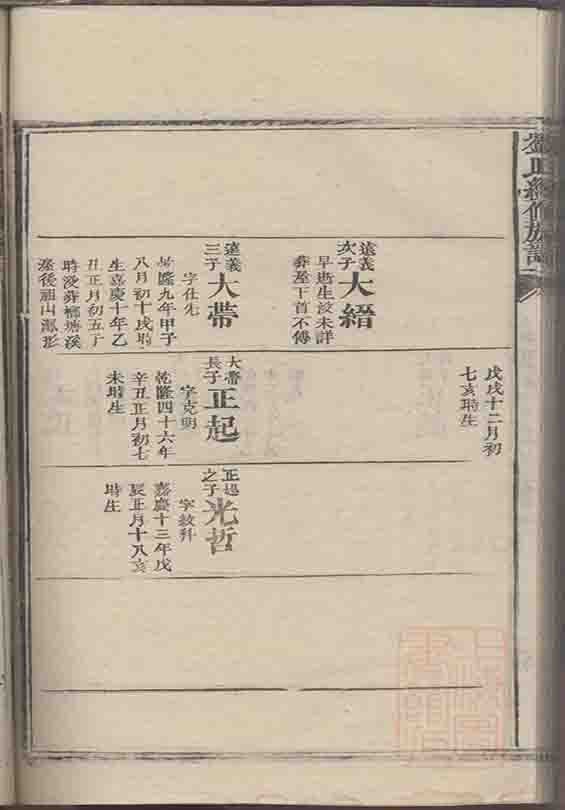 氏續修族譜
戊戌十二月初
七亥時生
遠義
次子
大縉
早逝生歿未詳
葬屋下首不傳
遠義
三子
大帶
字仕先
乾隆九年甲子
八月初十戌時
生嘉慶十年乙
丑正月初五子
時歿葬塘溪
屋後祖山形
大帶
長子
正起
字克明
乾隆四十六年
辛丑正月初七
未時生
正起
之子
光哲
字敘升
嘉慶十三年戊
辰正月十八亥
時生